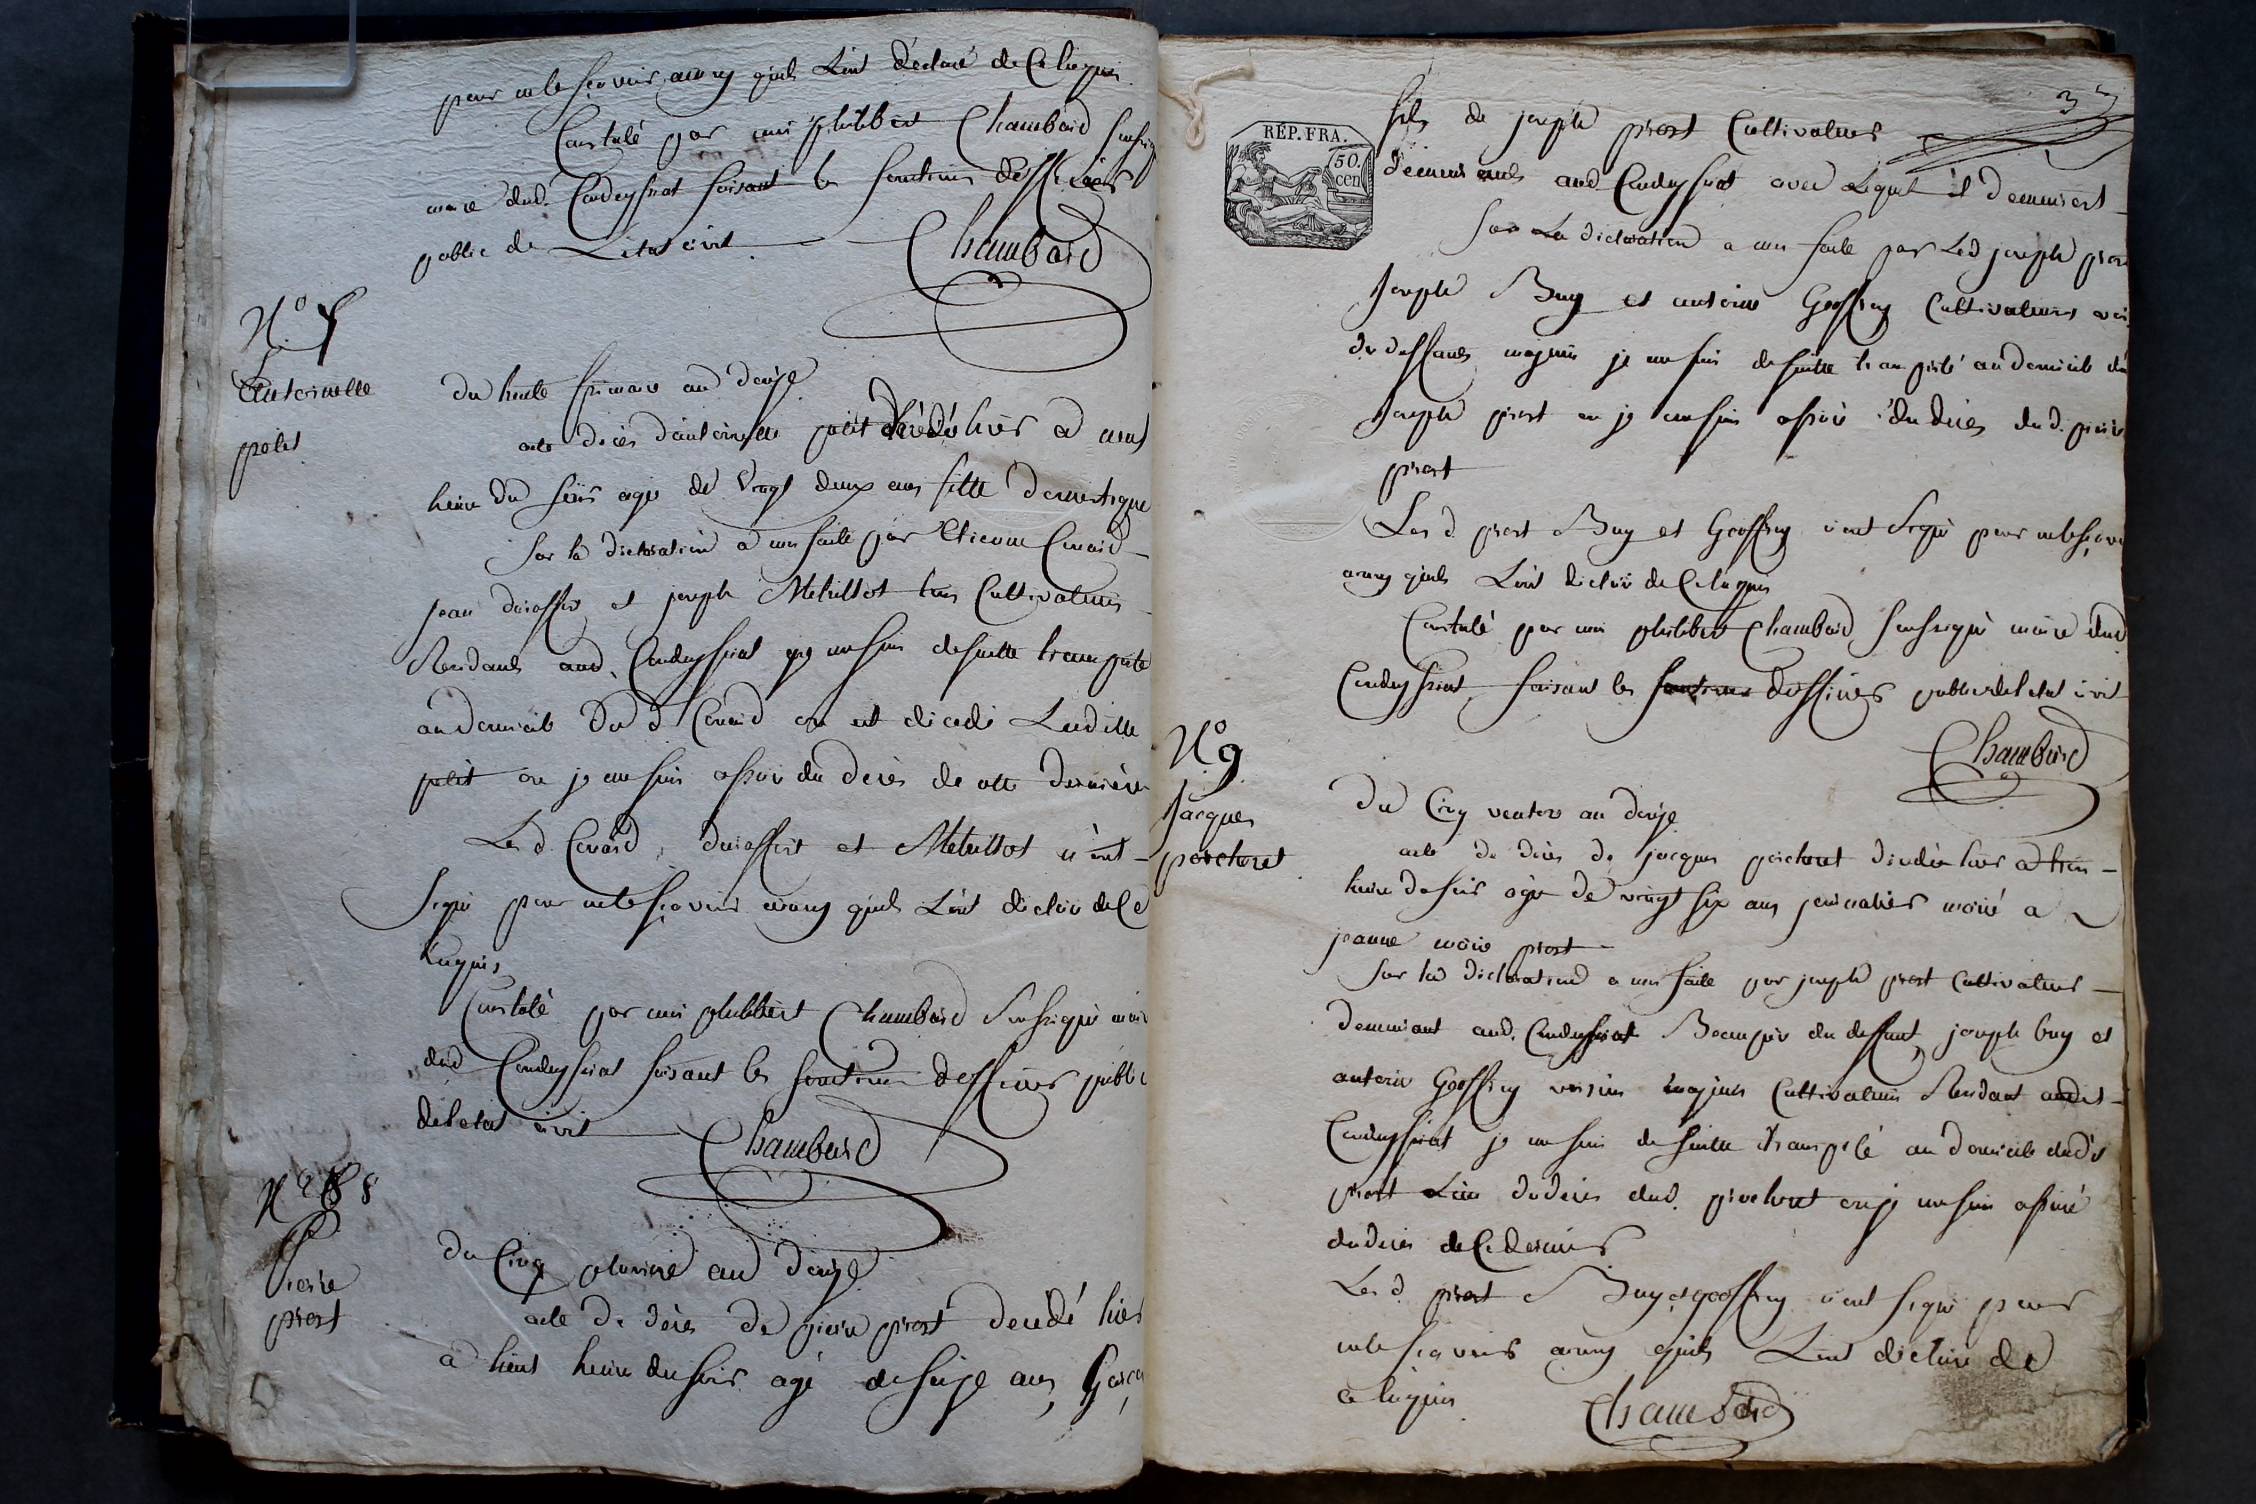 pour ne le sçavoir, ainsy quils L'ont déclaré de Ce Enquis
Constaté par moi philibert Chambard soussig
maire dud. Condeyssiat faisant les fonctions d'officier
public de L'etat civil Chambard
N.º 7
Antoinette
petit
du trente frimaire an douze
acte de décès d'antoinette petit décédé hier a neuf
heure du soir agé de vingt deux ans fille domestique
sur la déclaration a moi faite par Etienne
jean duraffor et joseph tous Cultivateurs
Résidants aud. Condeyssiat je me suis de suitte transporté
au domicile du d. ou est décédé Laditte
petit ou je me suis assuré du décès de cette dernière
Les d. duraffort et n'ont
signé pour ne le sçavoir ainsy quils L'ont déclaré de Ce
Enquis
Constaté par moi philibert Chambard soussigné maire
dud Condeyssiat faisant les fonctions d'officier public
de l'etat civil Chambard
N.º 8
Pierre
prost
du Cinq pluviose an douze
acte de décès de pierre prost décédé hier
a huit heure du soir agé de seize ans, Garçon
RÉP. FRA.
50.
cen
fils de joseph prost Cultivateur
demeurants aud Condeyssiat avec Lequel il demeuroit
Sur La déclaration a moi faite par Led joseph prost
Joseph Buy et antoine Geoffray Cultivateurs
du deffunt majeurs je me suis de suitte transporté au domicile du
Joseph prost ou je me suis assuré du décès dud. pierre
prost
Les d. prost Buy et Geoffray n'ont signé pour ne le sçavoir
ainsy quils L'ont déclaré de Ce Enquis
Constaté par moi philibert Chambard soussigné maire dud
Condeyssiat faisant les fonctions d'officier public de l'etat civil
Chambard
N.º 9
Jacques
percheret
Du Cinq ventose an douze
acte de décès de jacques percheret décédé hier a
heure du soir agé de vingt six ans journalier marié a
jeanne marie prost
sur la déclaration a moi faite par joseph prost Cultivateur
demeurant aud. Condeyssiat Beaupère du deffunt, joseph buy et
antoine Geoffray voisins majeurs Cultivateurs Résidant audit
Condeyssiat je me suis de suitte transporté au domicile dudit
prost Lieu du décès dud. percheret ou je me suis assuré
du décès de Ce dernier
Les d. prost Buy et geoffray n'ont signé pour
ne le sçavoir ainsy quils L'ont déclaré de
ce Enquis Chambard